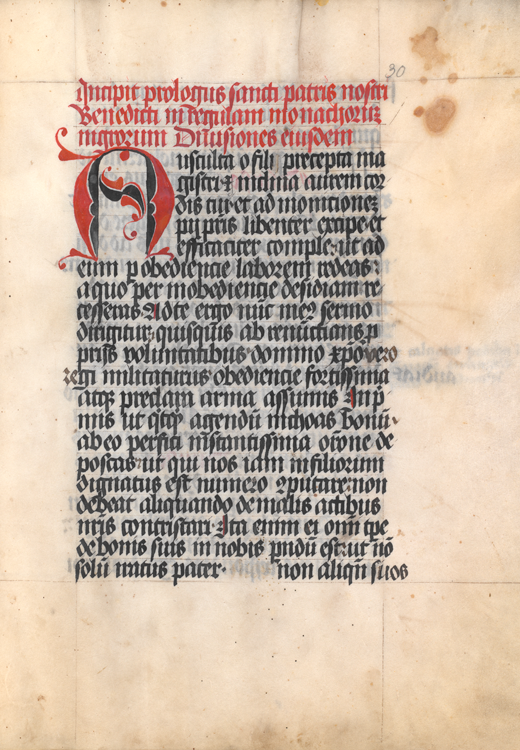 30
Incipit prologus sancti patris nostri
Benedicti in regulam monachorum
nigrorum Diuisiones eiusdem
Ausculta o fili precepta ma
gistri ⁊ inclina aurem cor
dis tui et admonicionem
pij pris libenter excipe et
efficaciter comple: ut ad
eum p obediencie laborem redeas:
a quo per inobediencie desidiam re
cesseras Ad te ergo nūc meꝰ sermo
dirigitur: quisquis abrenūctians p
prijs voluntatibus domino xpo vero
regi militaturus obediencie fortissima
atqꝫ preclara arma assumis Inp
mis ut qcqꝫ agendū inchoas bonū:
ab eo perfici instantissima orōne de
poscas: ut qui nos iam in filiorum
dignatus est numero ꝯputare: non
debeat aliquando de malis actibus
nris contristari Ita enim ei omi tpe
de bonis suis in nobis pndū est: ut nō
solū iratus pater non aliqn suos